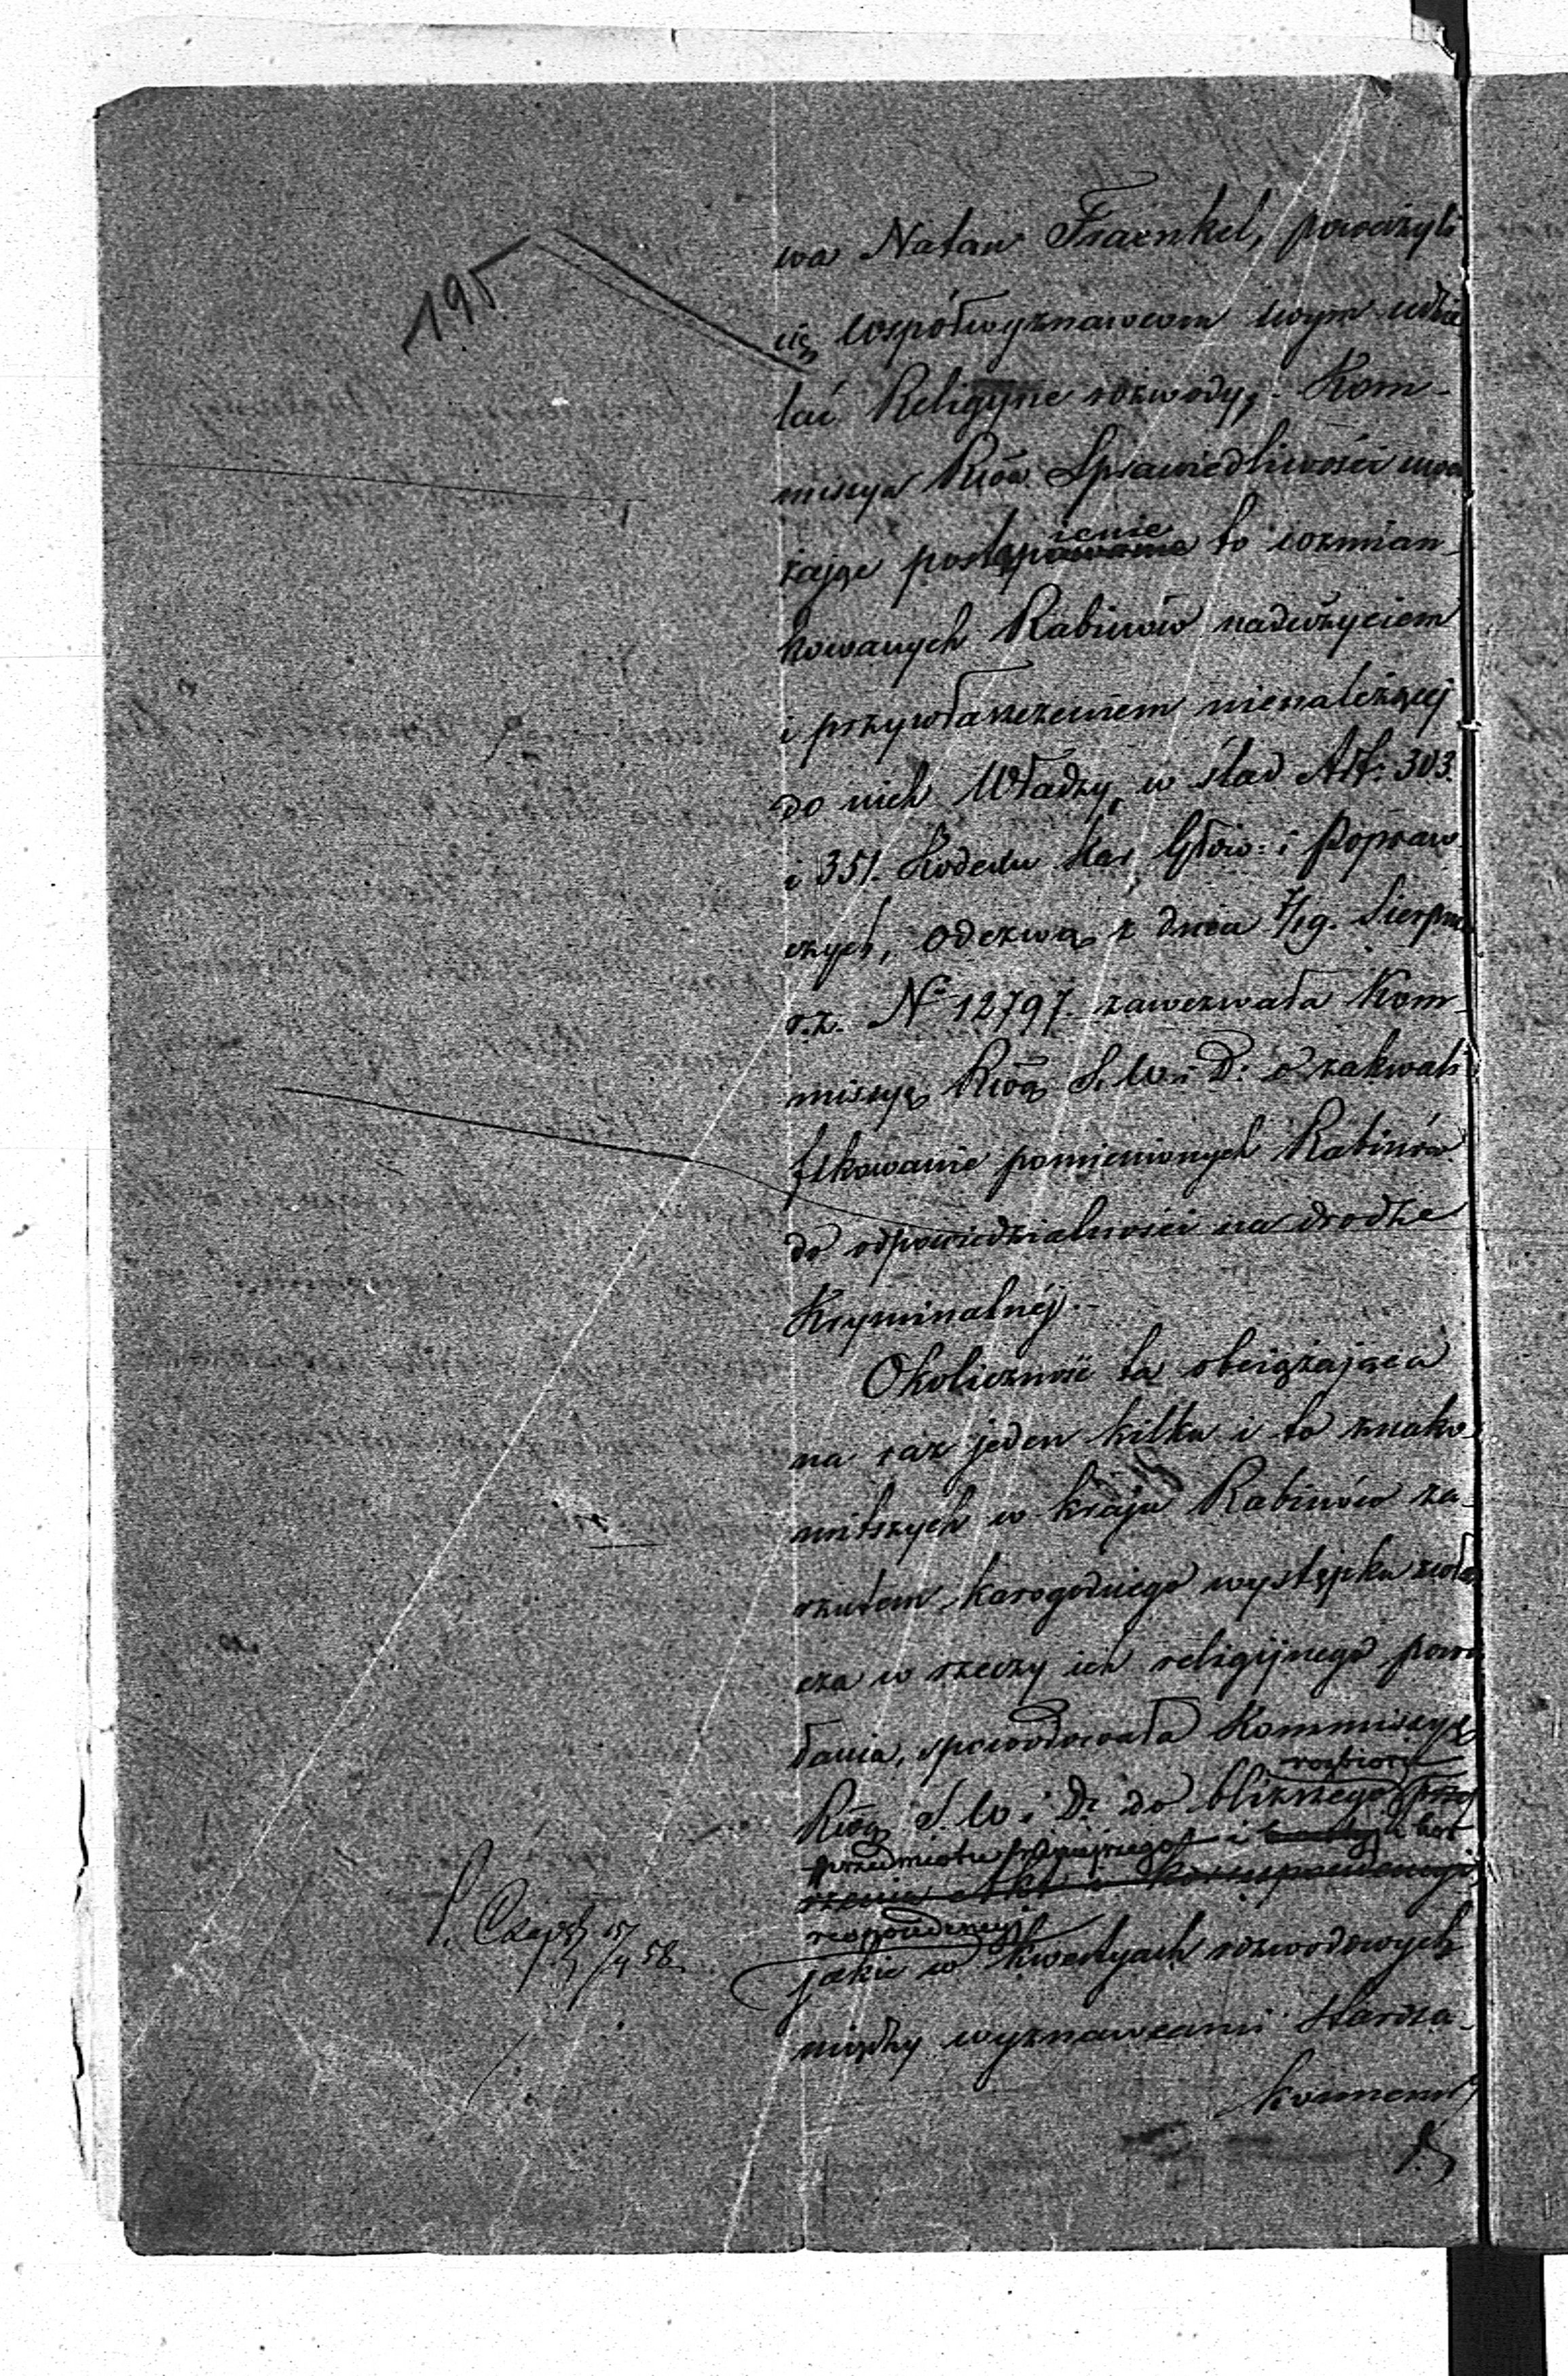 195
wa Natan Fraenkel, poważyli
się współwyznawcom swym udzie
lać Religijne rozwody, Kom-
missya Rząa Sprawiedliwości uwa
żając postąpienie to wzmian-
kowanych Rabinów nadużyciem
i przywłaszczeniem nienależącej
do nich Władzy, w ślad Art: 303.
i 351. Kodexu Kar Głów: i Popraw
czych, odezwą z dnia 7/19. Sierpnia
r.z. No 12797. zawezwała Kom-
missyę Rząą S. W. i D. o zakwali
fikowanie pomienionych Rabinów
do odpowiedzialności na drodze
Kryminalnéj.
Okoliczność ta obciążająca
na raz jeden kilku i to znako-
mitszych w kraju Rabinów za-
rzutem karogodnego występku zwła
cza w rzeczy ich religijnego powo
łania, spowodowała Kommissyę
Rząą S. W i D. do bliższego rozbioru
przedmiotu i kor
respondencyj
jakie w kwestyach rozwodowych
między wyznawcami Staroza-
konnemi
58